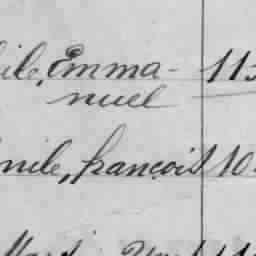 ile, Emma- 11
nuel
nile, françois 10